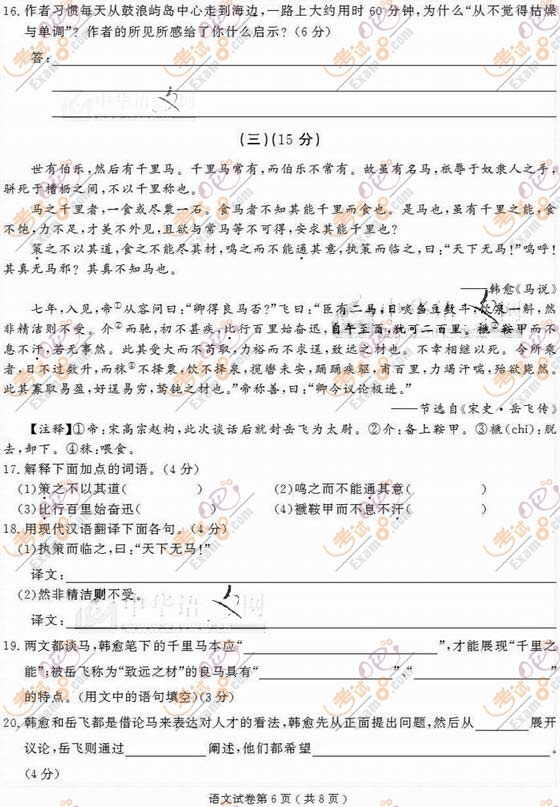 16.作者习惯每天从鼓浪屿岛中心走到海边,一路上大约用时60分钟,为什么“从不觉得枯燥
与单调”?作者的所见所感给了你什么启示?(6分)
答:
(三)(15分)
世有伯乐,然后有千里马。千里马常有,而伯乐不常有。故虽有名马,祇辱于奴隶人之手,
骈死于槽枥之间,不以千里称也。
马之千里者,一食或尽粟一石。食马者不知其能千里而食也。是马也,虽有千里之能,食
不饱,力不足,才美不外见,且欲与常马等不可得,安求其能千里也?
策之不以其道,食之不能尽其材,鸣之而不能通其意,执策而临之,曰:“天下无马!”呜呼!
其真无马邪?其真不知马也。
——韩愈《马说》
七年,入见,帝①从容问曰:“卿得良马否?”飞曰:“臣有二马,日啖刍豆数斗,饮泉一斛,然
非精洁则不受。介②而驰,初不甚疾,比行百里始奋迅,自午至酉,犹可二百里。褫③鞍甲而不
息不汗,若无事然。此其受大而不苟取,力裕而不求逞,致远之材也。不幸相继以死。今所乘
者,日不过数升,而秣④不择粟,饮不择泉,揽辔未安,踊踊疾驱,甫百里,力竭汗喘,殆欲毙然。
此其寡取易盈,好逞易穷,驽钝之材也。”帝称善,曰:“卿今议论极进。”
——节选自《宋史·岳飞传》
【注释】①帝:宋高宗赵构,此次谈话后就封岳飞为太尉。②介:备上鞍甲。③褫(chǐ):脱
去,卸下。④秣:喂食。
17.解释下面加点的词语。(4分)
(1)策之不以其道( ) (2)鸣之而不能通其意( )
(3)比行百里始奋迅( ) (4)褫鞍甲而不息不汗( )
18.用现代汉语翻译下面各句。(4分)
(1)执策而临之,曰:“天下无马!”
译文:
(2)然非精洁则不受。
译文:
19.两文都谈马,韩愈笔下的千里马本应“ ”,才能展现“千里之
能”;被岳飞称为“致远之材”的良马具有“ ”、“ ”
的特点。(用文中的语句填空)(3分)
20.韩愈和岳飞都是借论马来表达对人才的看法,韩愈先从正面提出问题,然后从 展开
议论,岳飞则通过 阐述,他们都希望 。
(4分)
语文试卷第6页(共8页)